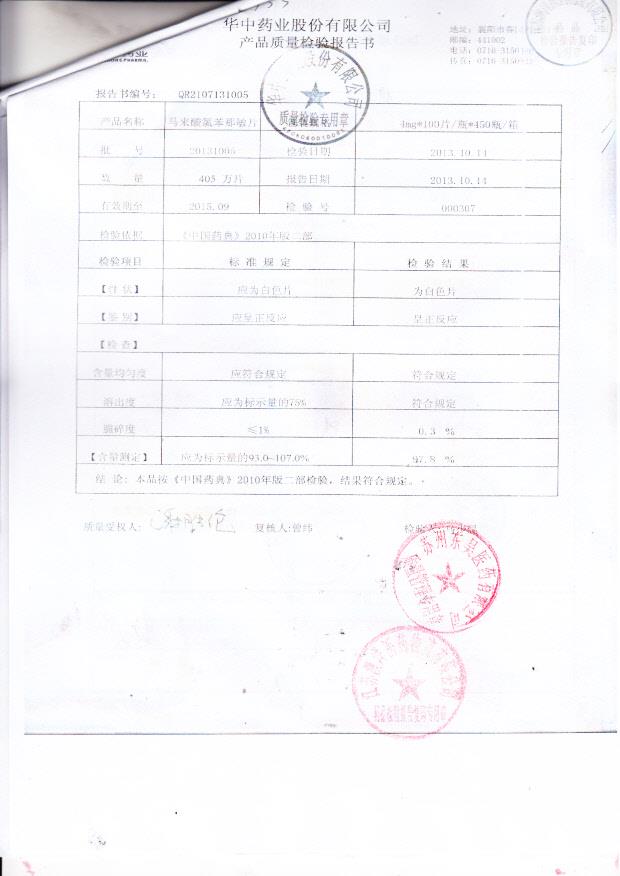 华中药业股份有限公司
产品质量检验报告书
地址：襄阳市
邮编：441002
电话：0710-3150
传真：0710-3150
报告书编号： QR2107131005
产品名称 马来酸氯苯那敏片 4mg*100片/瓶*450瓶/箱
批 号 20131005 检验日期 2013.10.14
数 量 405 万片 报告日期 2013.10.14
有效期至 2015.09 检 验 号 000307
检验依据 《中国药典》2010年版二部
检验项目 标 准 规 定 检 验 结 果
【性 状】 应为白色片 为白色片
【鉴 别】 应呈正反应 呈正反应
【检 查】
含量均匀度 应符合规定 符合规定
溶出度 应为标示量的75% 符合规定
脆碎度 ≤1% 0.3 %
【含量测定】 应为标示量的93.0-107.0% 97.8 %
结 论：本品按《中国药典》2010年版二部检验，结果符合规定。
质量受权人： 复核人:曾纬 检验人
股份有限公司
质量检验专用章
苏州东吴医药有限公司